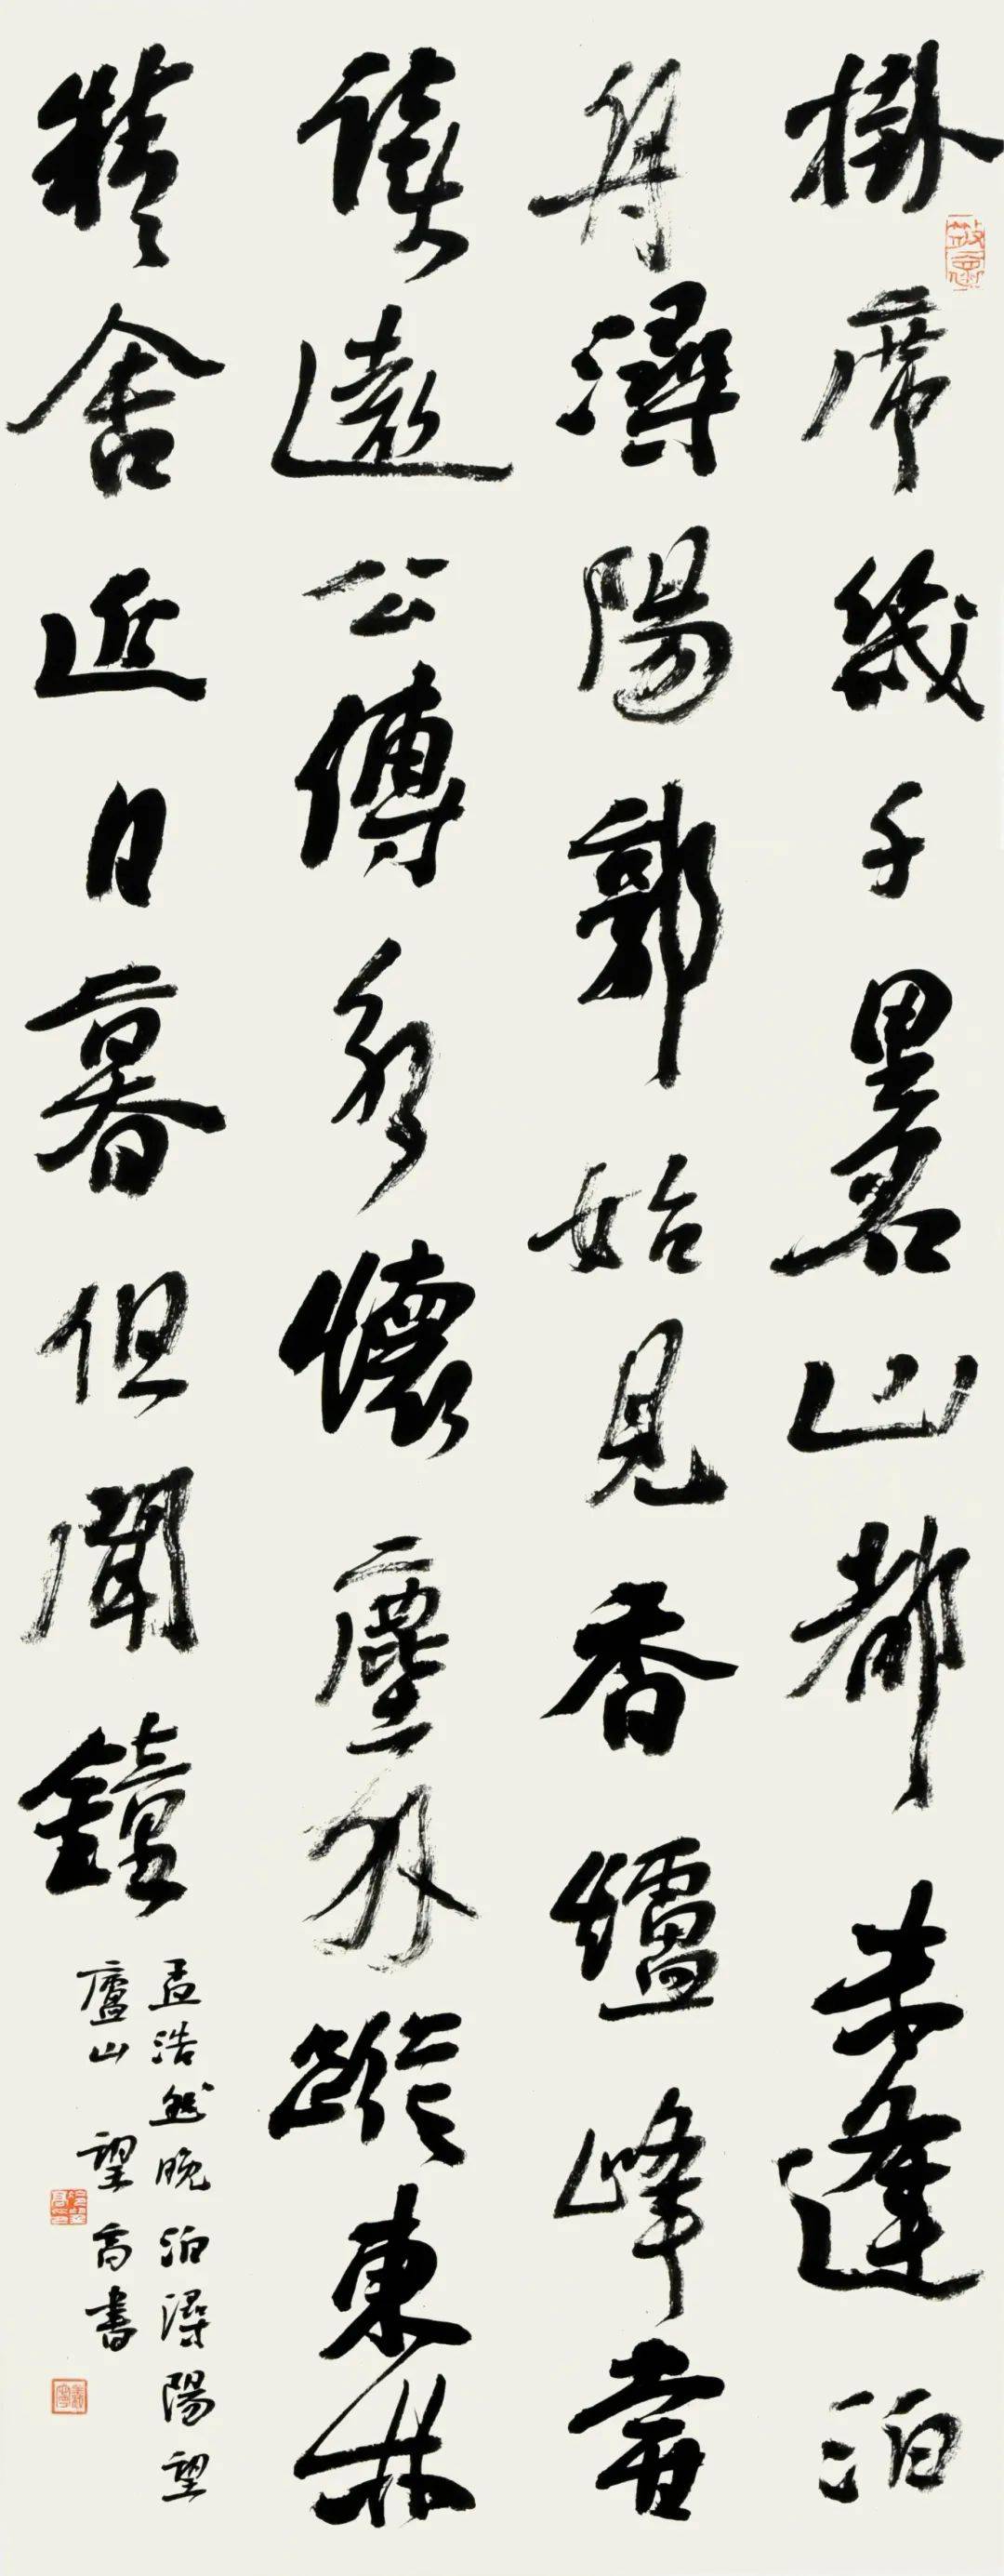 掛席幾千里名山都未逢泊
舟潯陽郭始見香爐峰嘗
讀遠公傳永懷塵外蹤東林
精舍近日暮但聞鐘
孟浩然晚泊潯陽望
廬山 望高書